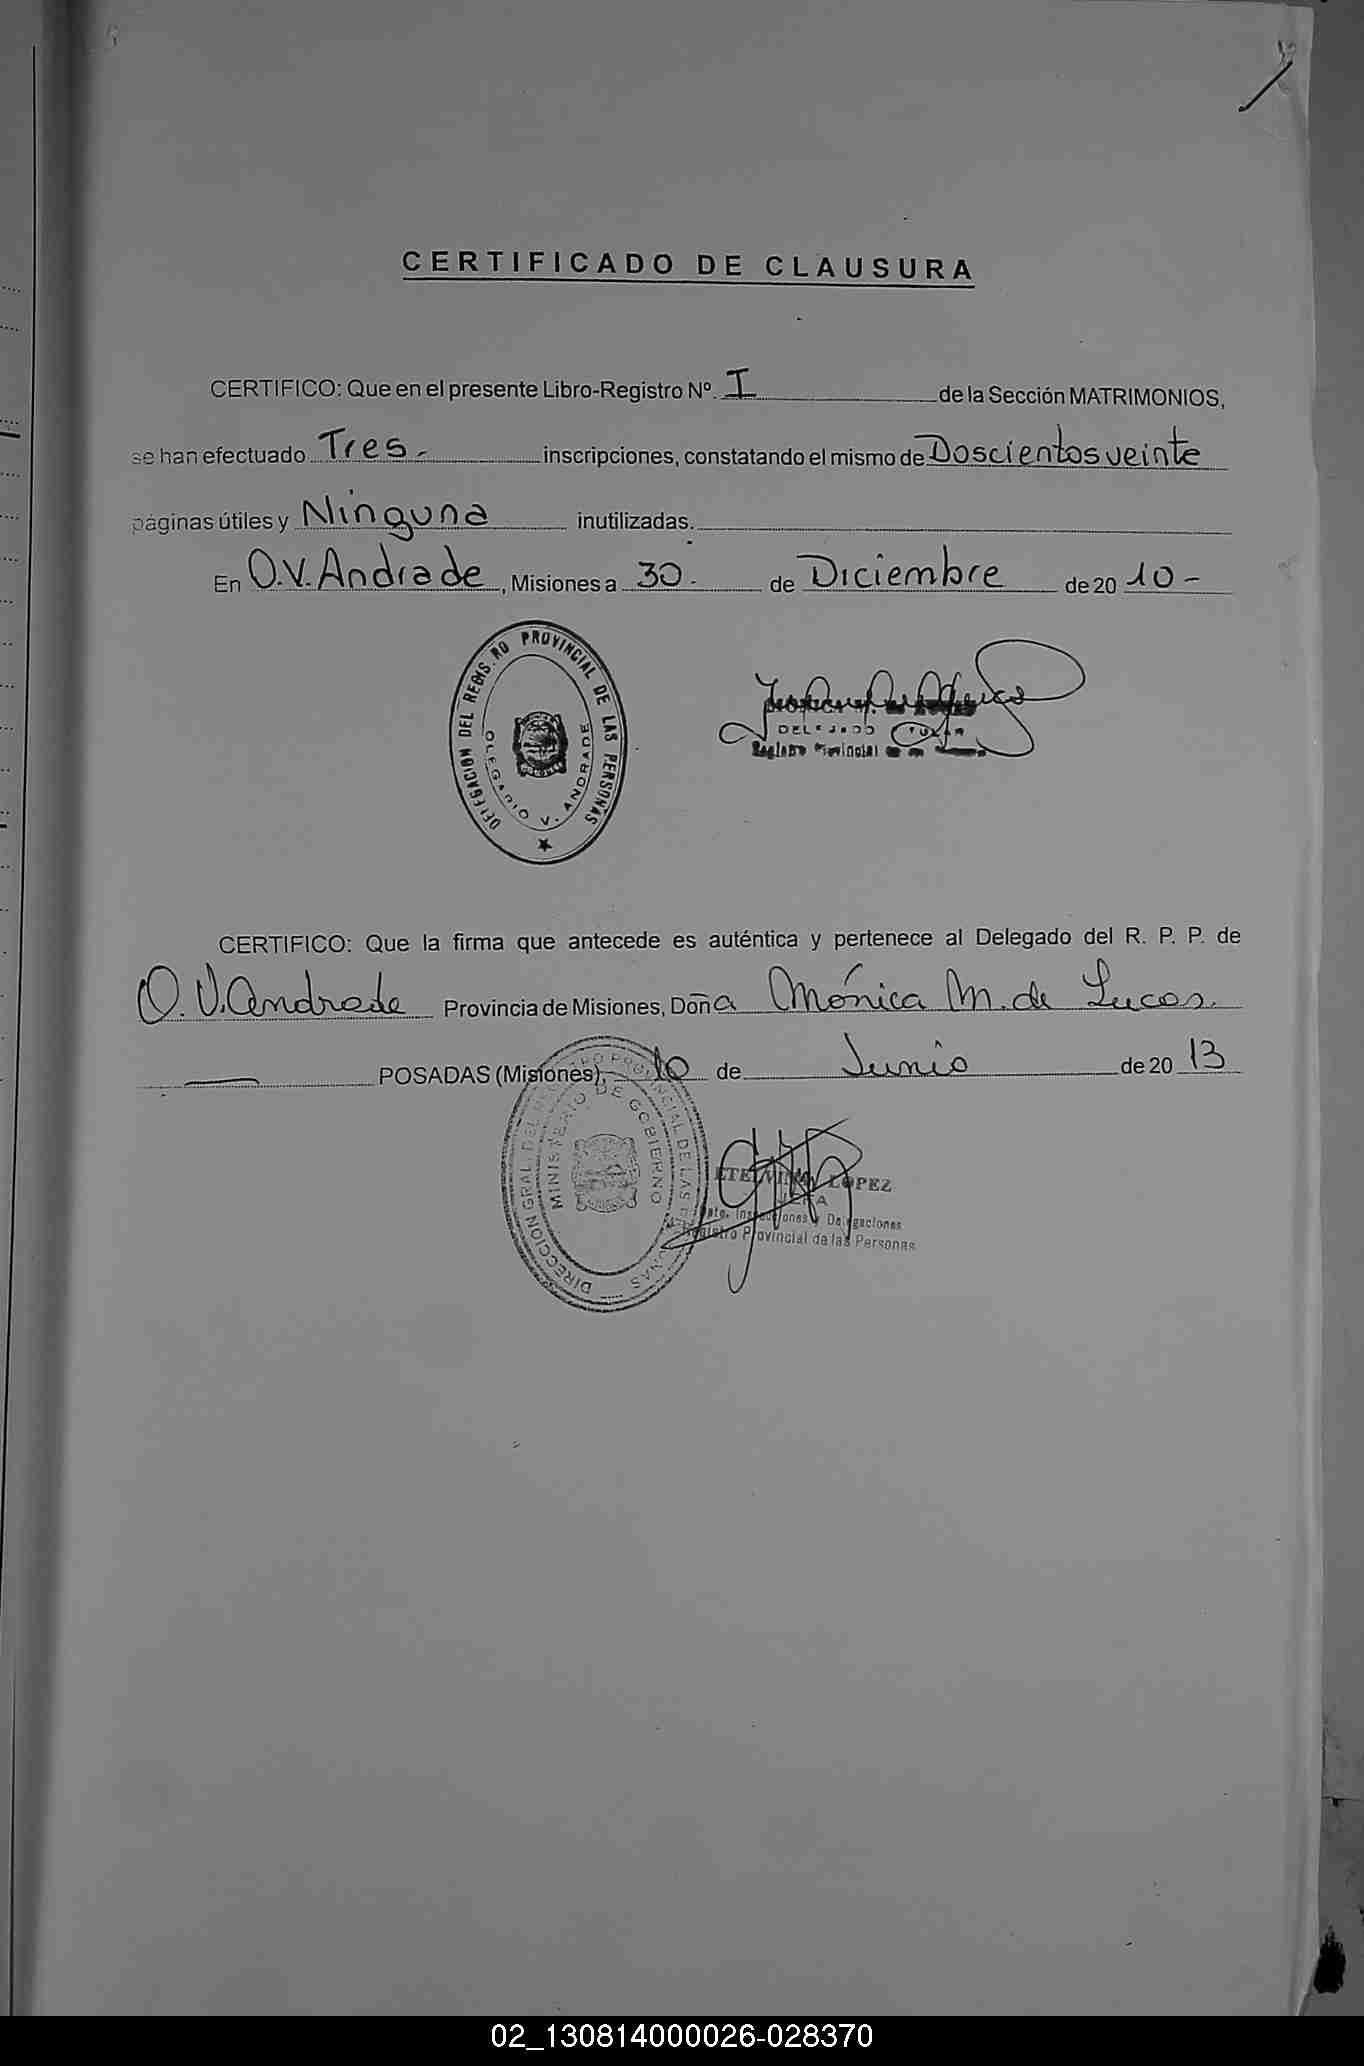 CERTIFICADO DE CLAUSURA
CERTIFICO: Que en el presente Libro-Registro Nº. I de la Sección MATRIMONIOS,
se han efectuado Tres.- inscripciones, constatando el mismo de Doscientos veinte
páginas útiles y Ninguna inutilizadas.
En O.V. Andrade, Misiones a 30.- de Diciembre de 20 10-
DELEGACION DEL REGIS.RO PROVINCIAL DE LAS PERSONAS
OLEGARIO V. ANDRADE
Provincial
CERTIFICO: Que la firma que antecede es auténtica y pertenece al Delegado del R. P. P. de
O.V. Andrade Provincia de Misiones, Doña Mónica M. de Lucas.
POSADAS (Misiones), 10 de Junio de 20 13
DIRECCION GRAL. DEL REGISTRO PROVINCIAL DE LAS PERSONAS
MINISTERIO DE GOBIERNO
ETELVINA LOPEZ
JEFA
Dpto. Inspecciones y Delegaciones
Registro Provincial de las Personas
02_130814000026-028370